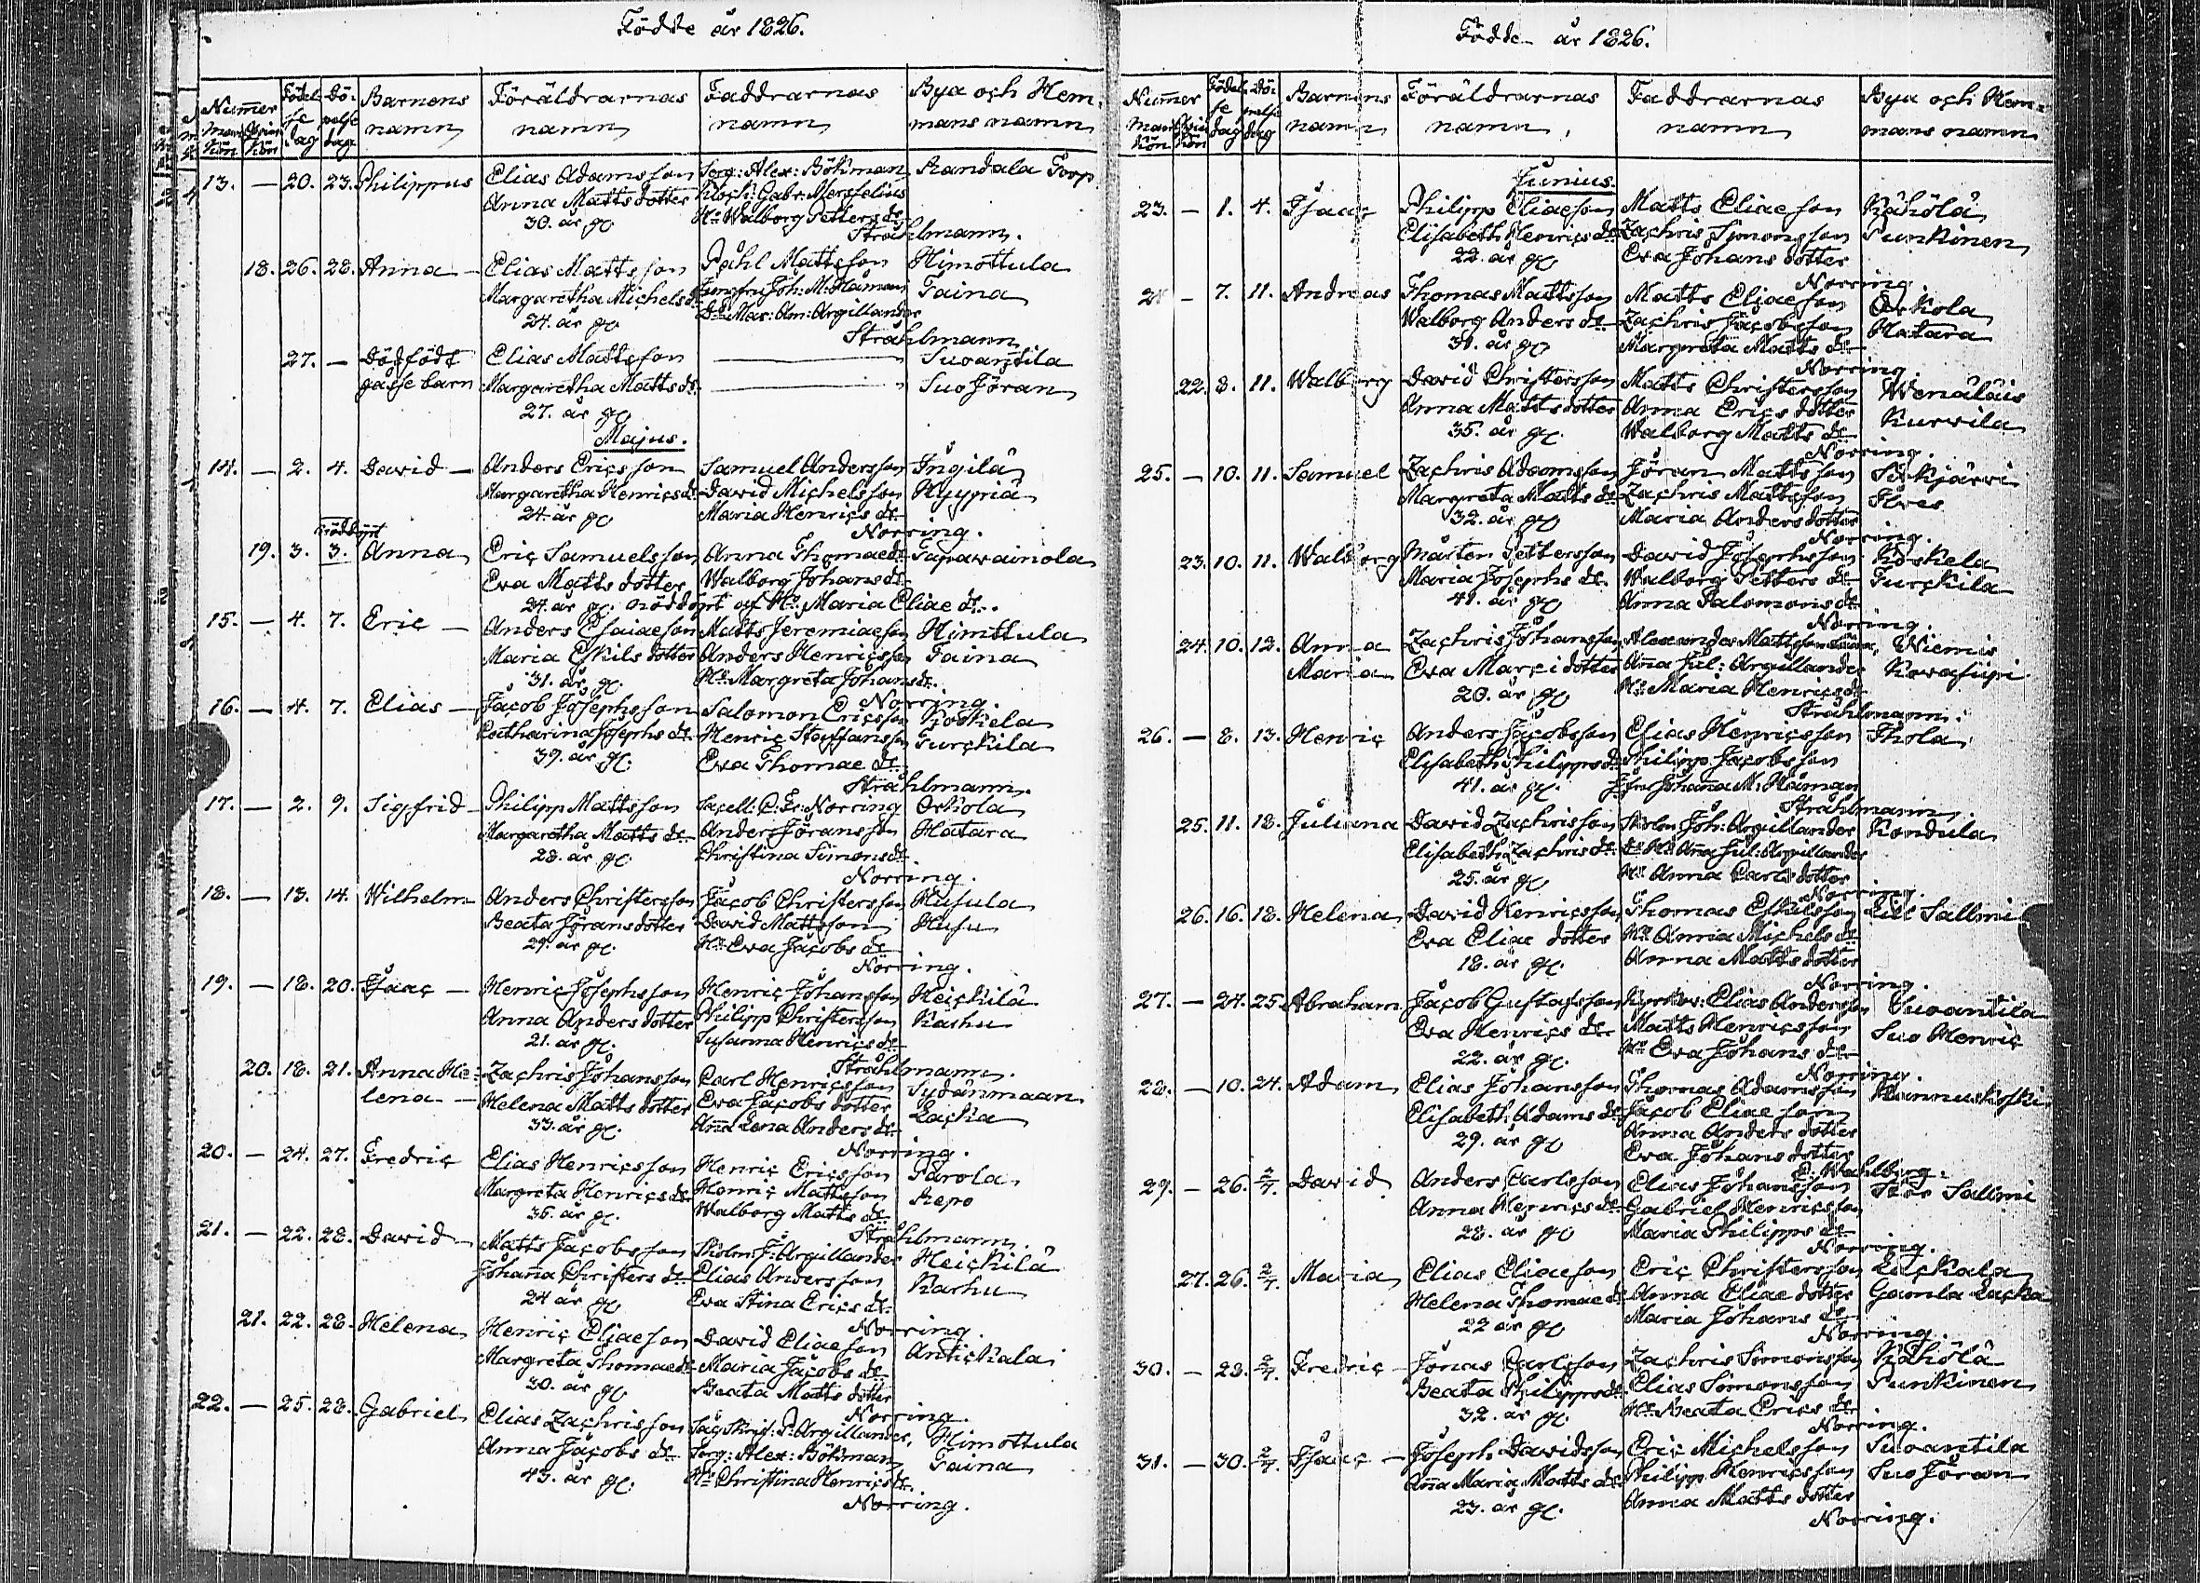 Födde år 1826.
Num̄er Födel- Dö- Barnens Föräldrarnas Faddrarnas Bya och Hem-
Man Qvin se pelse namn namn namn mans namn
Kön Kön dag dag
13. — 20. 23. Philippus Elias Adamsson Serg: Alex: Bökman Kandala Torp
Anna Matts dotter Klock: Gabr: Mergfelius
30. år gl. H: Walborg Petters dr
Stråhlmann.
18. 26. 28. Anna — Elias Mattsson Påhl Mattsson Himottula
Margaretha Michels dr Jungfru Joh: M: Håman Taina
24. år gl. Dto Mar: Am: Argillander
Stråhlmann
27. — Dödfödt Elias Mattsson — Suoantila
gåsse barn Margaretha Matts dr — Suo Jöran
27. år gl.
Majus.
14. — 2. 4. David — Anders Ericsson Samuel Andersson Ingilä
Margaretha Henrics dr David Michelsson Hyypiä
24. år gl. Maria Henrics dr
Norring.
nöddöpt
19. 3. 3. Anna Eric Samuelsson Anna Thomae dr Tapawainola
Eva Matts dotter Walborg Johans dr
24. år gl. nöddöpt af H: Maria Eliae dr.
15. — 4. 7. Eric — Anders Esaiaeson Matts Jeremiaeson Himottula
Maria Eskils dotter Anders Henricsson Taina
31. år gl. H: Margreta Johans dr.
Norring.
16. — 4. 7. Elias — Jacob Josephsson Salomon Ericsson Koskela
Catharina Josephs dr Henric Staffansson Turckila
39. år gl. Eva Thomae dr
Stråhlmann.
17. — 2. 9. Sigfrid — Philipp Mattsson Sacell: C: Er: Norring Orkola
Margaretha Matts dr Anders Jöransson Hatara
28. år gl. Christina Simons dr
Norring.
18. — 13. 14. Wilhelm Anders Christersson Jacob Christersson Husula
Beata Jörans dotter David Mattsson Husu
29. år gl. H: Eva Jacobs dr
Norring.
19. — 18. 20. Isaac — Henric Josephsson Henric Johansson Heickilä
Anna Anders dotter Philipp Christersson Karhu
21. år gl. Susanna Henrics dr
Stråhlmann.
20. 18. 21. Anna He- Zachris Johansson Carl Henricsson Sydänmaan
lena — Helena Matts dotter Eva Jacobs dotter Lacka
33. år gl. Anna Lena Anders dr
Norring.
20. — 24. 27. Fredric Elias Henricsson Henric Ericsson Parola
Margreta Henrics dr Henric Mattsson Repo
36. år gl. Walborg Matts dr
Stråhlmann.
21. — 22. 28. David — Matts Jacobsson Skolm: J: Argillander Heickilä
Johana Christers dr Elias Andersson Karhu
24 år gl. Eva Stina Erics dr
Norring.
21. 22. 28. Helena Henric Eliaeson David Eliaeson Antickala
Margreta Thomae dr Maria Jacobs dr
30. år gl. Beata Matts dotter
Norring.
22. — 25. 28. Gabriel Elias Zachrisson Sag Skrif: P: Argillander, Himottula
Anna Jacobs dr Serg: Alex: Bökman Taina
43. år gl. H: Christina Henrics dr.
Norring.
Födde år 1826.
Num̄er Födel- Dö- Barnens Föräldrarnas Faddrarnas Bya och Hem-
Man Qvin se pelse namn namn namn mans namn
Kön Kön dag dag
Junius.
23. — 1. 4. Isaac Philipp Eliaeson Matts Eliaeson Kähölä
Elisabeth Henrics dr Zachris Simonsson Punkinen
22. år gl. Eva Johans dotter
Norring
24 — 7. 11. Andreas Thomas Mattsson Matts Eliaeson Orkola
Walborg Anders dr Zachris Jacobsson Hatara
31. år gl. Margreta Matts dr
Norring.
22. 8. 11. Walborg David Christersson Matts Christersson Wenäläis
Anna Matts dotter Anna Erics dotter Kurvila
35. år gl. Walborg Matts dr
Norring.
25. — 10. 11. Samuel Zachris Adamsson Jöran Mattsson Särkjärvi
Margreta Matts dr Zachris Mattsson Ilves
32. år gl. Maria Anders dotter
Norring.
23. 10. 11. Walborg Mårten Pettersson David Josephsson Koskela
Maria Josephs dr Walborg Petters dr Turckila
41. år gl. Anna Salomons dr
Norring.
24. 10. 12. Anna Zachris Johansson Alexander Mattsson Niemis
Maria Eva Marci dotter Ana Jul: Argillander Kovasiipi
20. år gl. H: Maria Henrics dr
Stråhlmann.
26. — 8. 13. Henric Anders Jacobsson Elias Henricsson Ihola
Elisabeth Philipps dr Philipp Jacobsson
41. år gl. Jfru Johana M: Håman
Stråhlmann.
25. 11. 18. Juliana David Zachrisson Skolm: Joh: Argillander Kondula
Elisabeth Zachris dr Ana Jul: Argillander
25. år gl. H: Anna Carls dotter
Norring.
26. 16. 18. Helena David Henricsson Thomas Eskilsson Lill Sallmi
Eva Eliae dotter H: Anna Michels dr
18. år gl. Anna Matts dotter
Norring.
27. — 24. 25. Abraham Jacob Gustafsson Kyrkov: Elias Andersson Suoantila
Eva Henrics dr Matts Henricsson Suo Henric
22. år gl. H: Eva Johans dr
Norring.
28. — 10. 24. Adam Elias Johansson Thomas Adamsson Hannuskoski
Elisabeth Adams dr Jacob Eliaeson
29. år gl. Anna Anders dotter
Eva Johans dotter
C: Wahlberg.
29. — 26. 2/7. David Anders Carlsson Elias Johansson Stor Sallmi
Anna Henrics dr Gabriel Henricsson
28. år gl. Maria Philipps dr
Norring.
27. 26. 2/7. Maria Elias Eliaeson Eric Christersson Lackala
Helena Thomae dr Anna Eliae dotter Gamla Lacka
22 år gl. Maria Johans dr
Norring.
30. — 28. 2/7. Fredric — Jonas Carlsson Zachris Simonsson Kähölä
Beata Philipps dr Elias Simonsson Punkinen
32. år gl. H: Beata Erics dr
Norring.
31. — 30. 2/7. Isaac — Joseph Davidsson Eric Michelsson Suoantila
Ana Maria Matts dr Philipp Henricsson Suo Jöran
23. år gl. Anna Matts dotter
Norring.